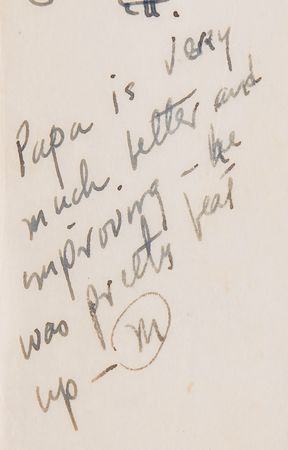 Papa is very
much better and
improving - he
was pretty beat
up - M